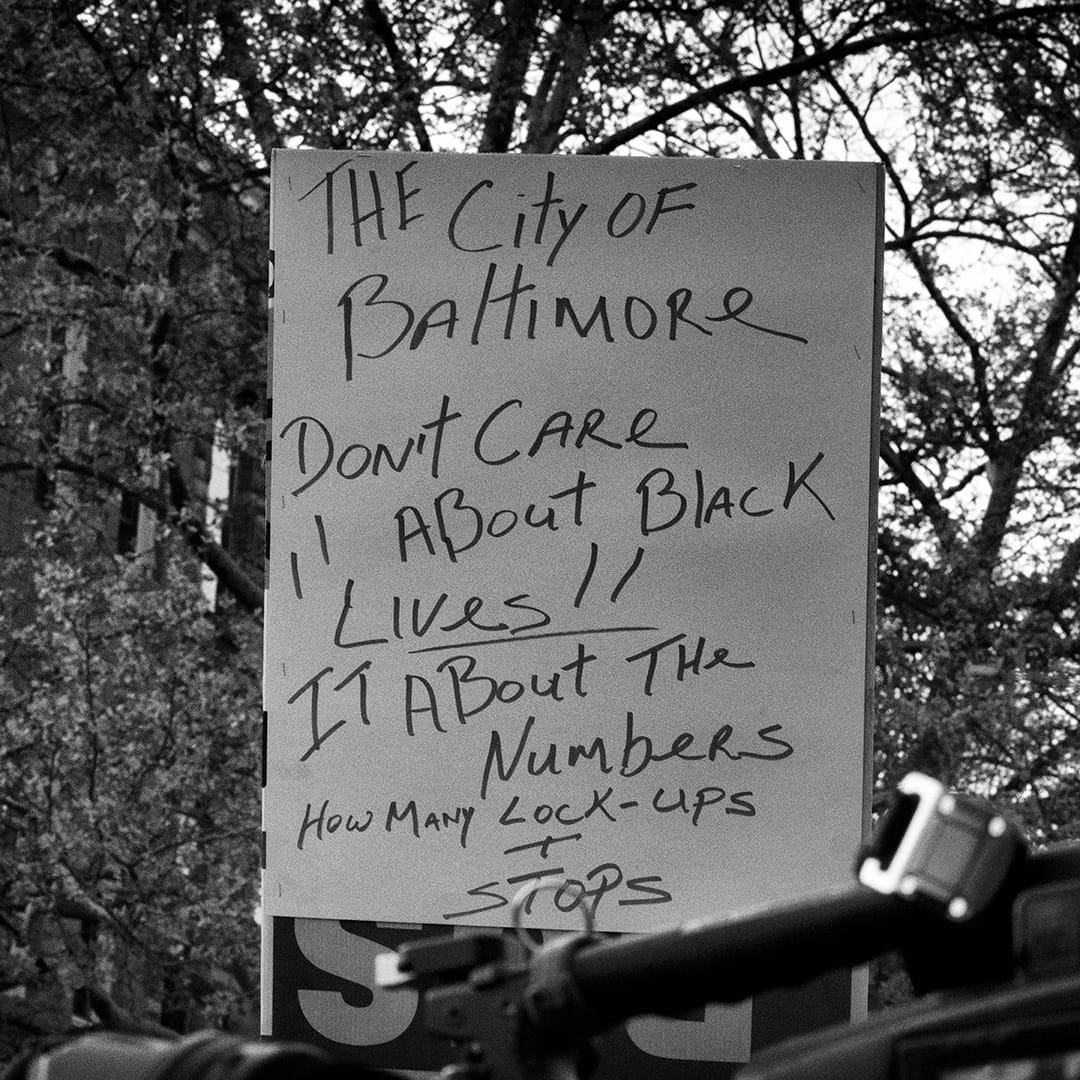 THE City OF
BAltiMORe
DON't CARe
ABout BlAcK
"Lives"
IT ABout THe
NumbeRS
HOW MANY LOCK-UPS
+
STOPS